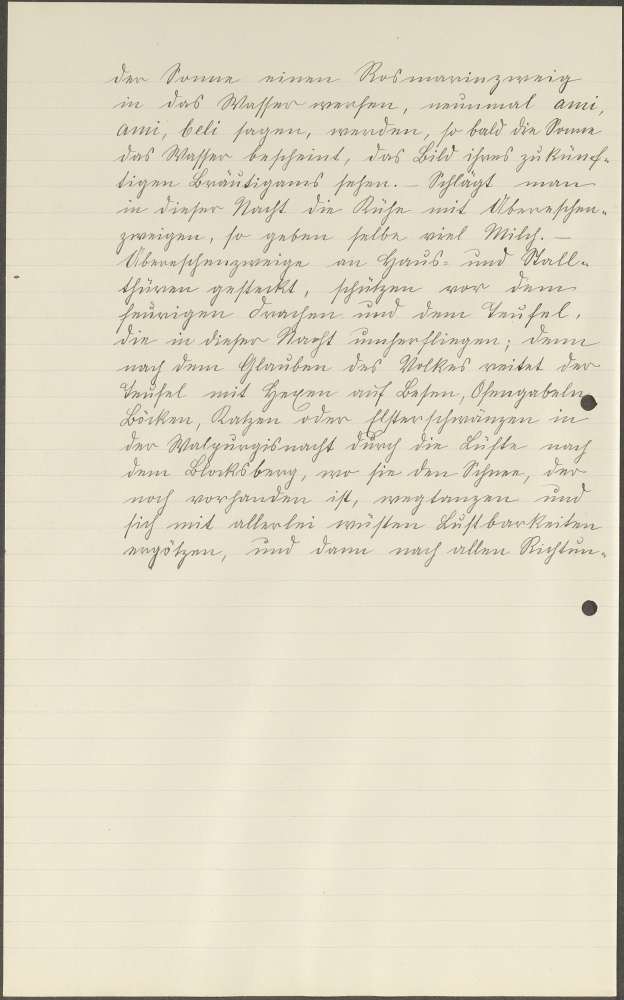 der Sonne einen Rosmarinzweig
in das Wasser werfen, neunmal ami,
ami, beli sagen, werden, so bald die Sonne
das Wasser bescheint, das Bild ihres zukünf-
tigen Bräutigams sehen. – Schlägt man
in dieser Nacht die Kühe mit Ebereschen-
zweigen, so geben selbe viel Milch. –
Ebereschenzweige an Haus- und Stall-
thüren gesteckt, schützen vor dem
feurigen Drachen und dem Teufel,
die in dieser Nacht umherfliegen; denn
nach dem Glauben des Volkes reitet der
Teufel mit Hexen auf Besen, Ofengabeln,
Böcken, Katzen oder Elsterschwänzen in
der Walpurgisnacht durch die Lüfte nach
dem Blocksberg, wo sie den Schnee, der
noch vorhanden ist, wegtanzen und
sich mit allerlei wüsten Lustbarkeiten
ergötzen, und dann nach allen Richtun-